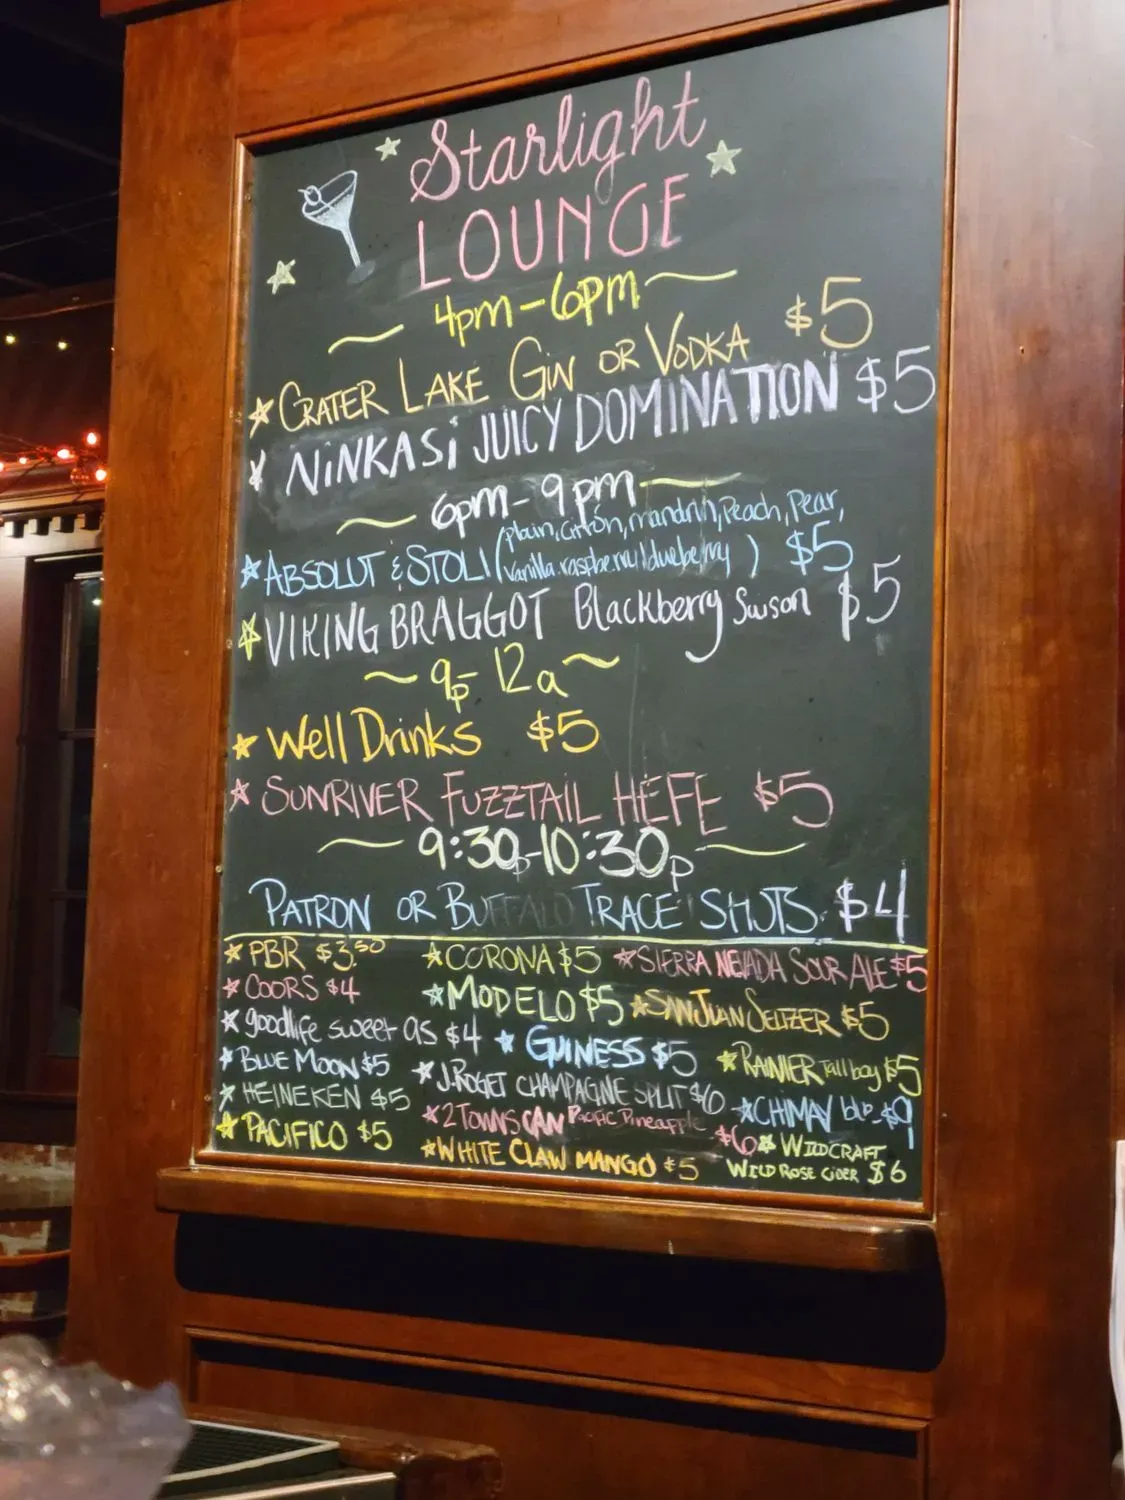 Starlight
LOUNGE
4pm-6pm
CRATER LAKE GIN OR VODKA $5
NINKASI JUICY DOMINATION $5
6pm-9pm
ABSOLUT & STOLI (plain, citrón, mandrin, Peach, Pear, $5
vanilla, raspberry, blueberry)
VIKING BRAGGOT Blackberry Swison $5
9p- 12a
Well Drinks $5
SUNRIVER FUZZTAIL HEFE $5
9:30p-10:30p
PATRON OR BUFFALO TRACE SHOTS $4
PBR $3.50
COORS $4
goodlife sweet as $4
BLUE MOON $5
HEINEKEN $5
PACIFICO $5
CORONA $5
MODELO $5
GUINESS $5
J. ROGET CHAMPAGINE SPLIT $6
2 TOWNS CAN Pacific Pineapple $6
WHITE CLAW MANGO $5
SIERRA NEVADA SOUR ALE $5
SAN JUAN SELTZER $5
RAINIER Tall boy $5
CHIMAY blu $9
WILDCRAFT
WILD ROSE CIDER $6